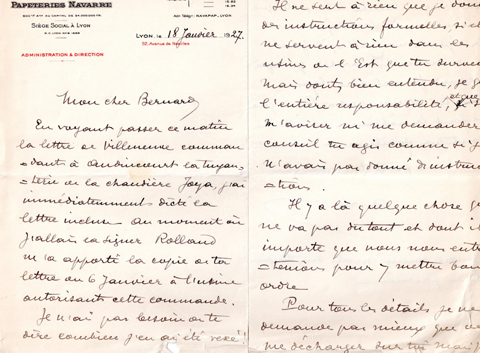 PAPETERIES NAVARRE
SIÈGE SOCIAL À LYON
ADMINISTRATION & DIRECTION
LYON, LE 18 Janvier 1927.
Mon cher Bernard
En voyant passer ce matin
la lettre de Villeneuve comman
dant à Audincourt la tuyau
-terie de la chaudière Joya, j'ai
immédiatement dicté la
lettre incluse. Au moment où
j'allais la signer Rolland
m'a apporté la copie de ton
lettre du 6 Janvier à l'usine
autorisant cette commande.
Je n'ai pas besoin de te
dire combien j'en ai été vexé!
Il ne sert à rien que je do
des instructions formelles, si el
ne servent à rien dans les
usines ou l'
mais dont, bien entendu, je g
l'entière responsabilité, et que
m'aviser ni me demander
conseil tu agis comme si j
n'avais pas donné d'instruc
-tions.
Il y a là quelque chose q
ne va pas du tout et dont il
importe que nous nous entre
-tenions pour y mettre bon
ordre
Pour tous les détails je ne
demande pas mieux que de
me décharger sur toi mais j